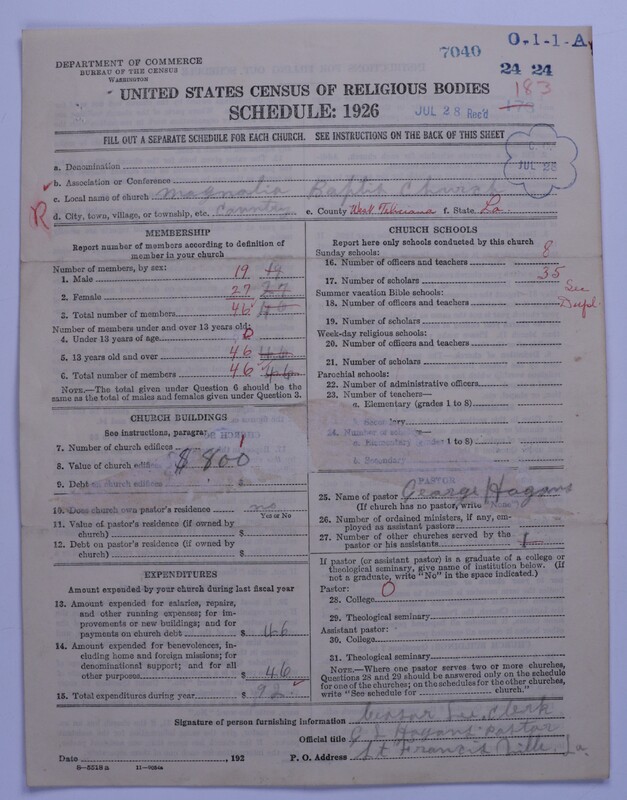 7040
O-1-1-A
DEPARTMENT OF COMMERCE
BUREAU OF THE CENSUS
WASHINGTON
24 24
UNITED STATES CENSUS OF RELIGIOUS BODIES
183
SCHEDULE: 1926
JUL 28 Rec'd
174
FILL OUT A SEPARATE SCHEDULE FOR EACH CHURCH. SEE INSTRUCTIONS ON THE BACK OF THIS SHEET
JUL 28
a. Denomination
b. Association or Conference
c. Local name of church Magnolia Baptis Church
R
d. City, town, village, or township, etc. Country e. County West Feliciana f. State La.
MEMBERSHIP
Report number of members according to definition of
member in your church
Number of members, by sex:
1. Male 19 19
2. Female 27 27
3. Total number of members 46 46
Number of members under and over 13 years old:
4. Under 13 years of age 0
5. 13 years old and over 46 46
6. Total number of members 46 46
NOTE.—The total given under Question 6 should be
same as the total of males and females given under Question 3.
CHURCH BUILDINGS
See instructions, paragra
7. Number of church edifices 1
8. Value of church edifi $800
9. Debt on church edifices $
10. Does church own pastor's residence no
Yes or No
11. Value of pastor's residence (if owned by
church) $
12. Debt on pastor's residence (if owned by
church) $
EXPENDITURES
Amount expended by your church during last fiscal year
13. Amount expended for salaries, repairs,
and other running expenses; for im-
provements or new buildings; and for
payments on church debt $ 46
14. Amount expended for benevolences, in-
cluding home and foreign missions; for
denominational support; and for all
other purposes $ 46
15. Total expenditures during year $ 92
CHURCH SCHOOLS
Report here only schools conducted by this church
Sunday schools:
16. Number of officers and teachers 8
17. Number of scholars 35
See
Dupl.
Summer vacation Bible schools:
18. Number of officers and teachers
19. Number of scholars
Week-day religious schools:
20. Number of officers and teachers
21. Number of scholars
Parochial schools:
22. Number of administrative officers
23. Number of teachers—
a. Elementary (grades 1 to 8)
b. Secondary
24. Number of scholars—
a. Elementary (grades 1 to 8)
b. Secondary
PASTOR
25. Name of pastor George Hagans
(If church has no pastor, write "None")
26. Number of ordained ministers, if any, em-
ployed as assistant pastors
27. Number of other churches served by the
pastor or his assistants 1
If pastor (or assistant pastor) is a graduate of a college or
theological seminary, give name of institution below. (If
not a graduate, write "No" in the space indicated.)
Pastor:
28. College O
29. Theological seminary
Assistant pastor:
30. College
31. Theological seminary
NOTE.—Where one pastor serves two or more churches,
Questions 28 and 29 should be answered only on the schedule
for one of the churches; on the schedules for the other churches,
write "See schedule for church."
Signature of person furnishing information Ceasar Lee, Clerk
Official title G J Hagans pastor
Date , 192 P. O. Address St Francis Ville, La.
8—5218 a 11—9054a